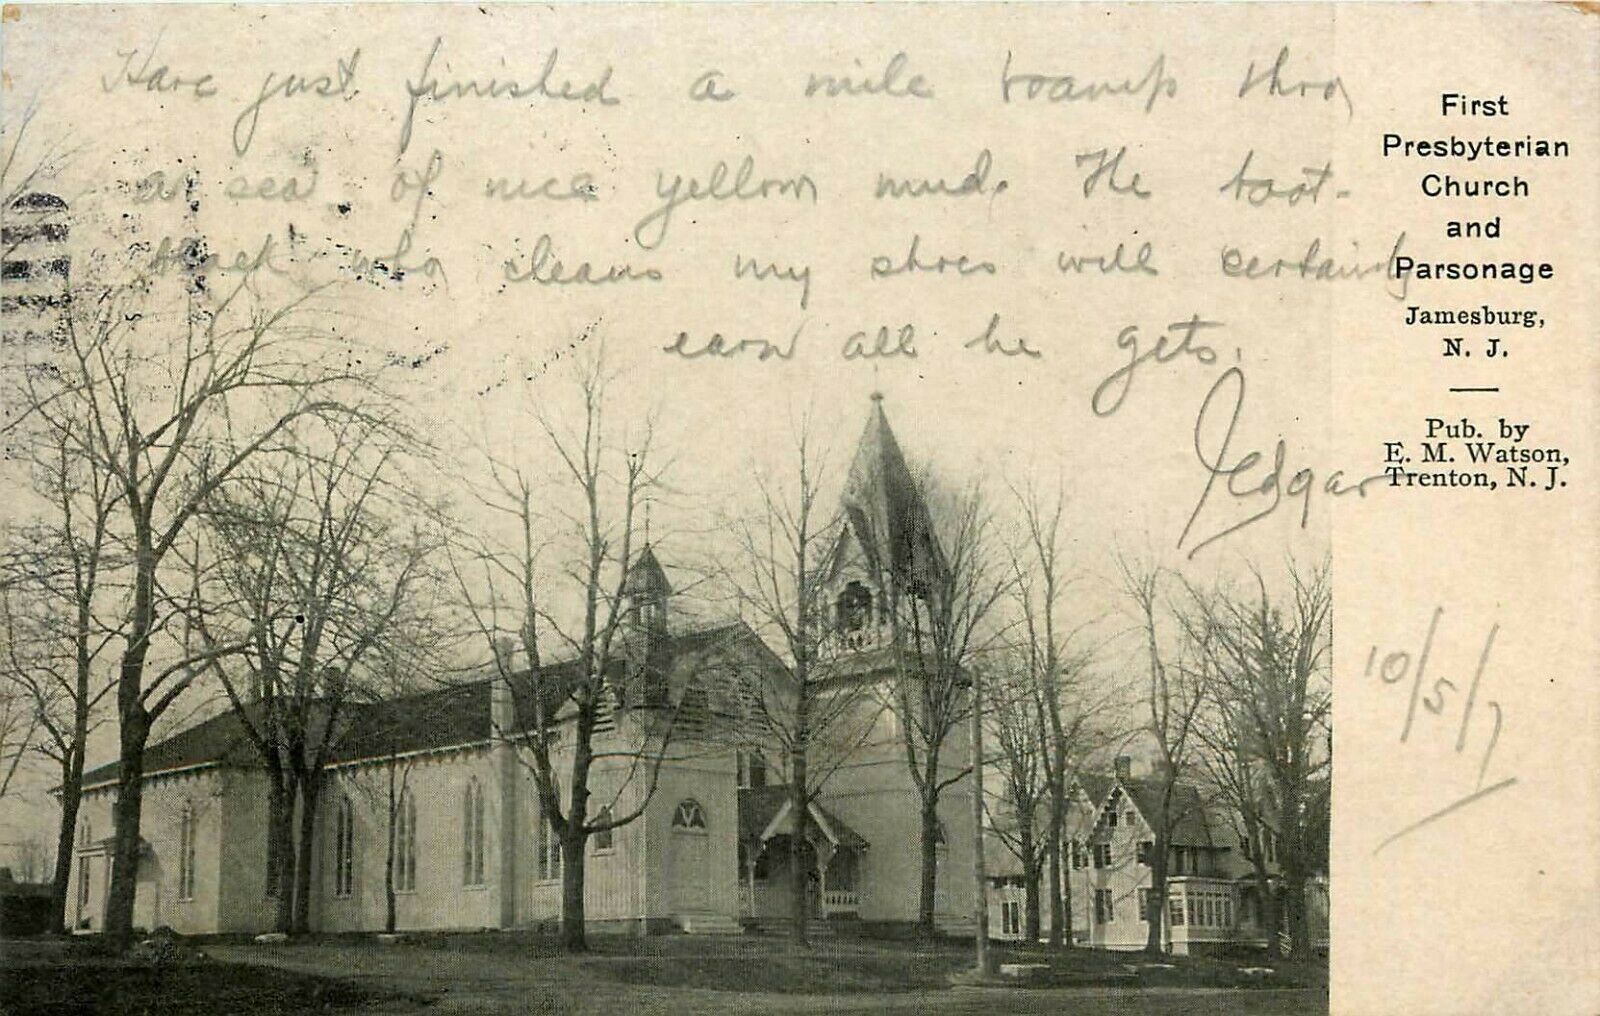 Have just finished a mile tramp thro
a sea of nice yellow mud. The boot-
black who cleans my shoes will certainly
earn all he gets.
Edgar
10/5/7
First
Presbyterian
Church
and
Parsonage
Jamesburg,
N. J.
Pub. by
E. M. Watson,
Trenton, N. J.